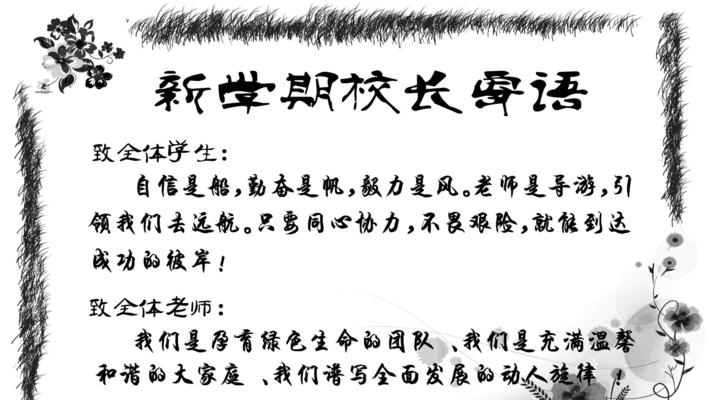 新学期校长寄语
致全体学生：
自信是船，勤奋是帆，毅力是风。老师是导游，引
领我们去远航。只要同心协力，不畏艰险，就能到达
成功的彼岸！
致全体老师：
我们是孕育绿色生命的团队、我们是充满温馨
和谐的大家庭、我们谱写全面发展的动人旋律！